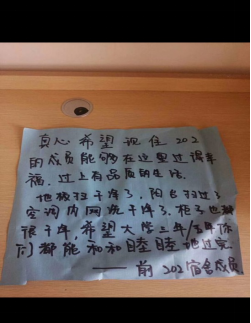 真心希望现住202
的成员能够在这里过得幸
福，过上有品质的生活。
地板扫干净了，阳台扫过了
空调内网洗干净了，柜子也都
很干净，希望大学三年/四年你
们都能和和睦睦地过完。
——前202宿舍成员